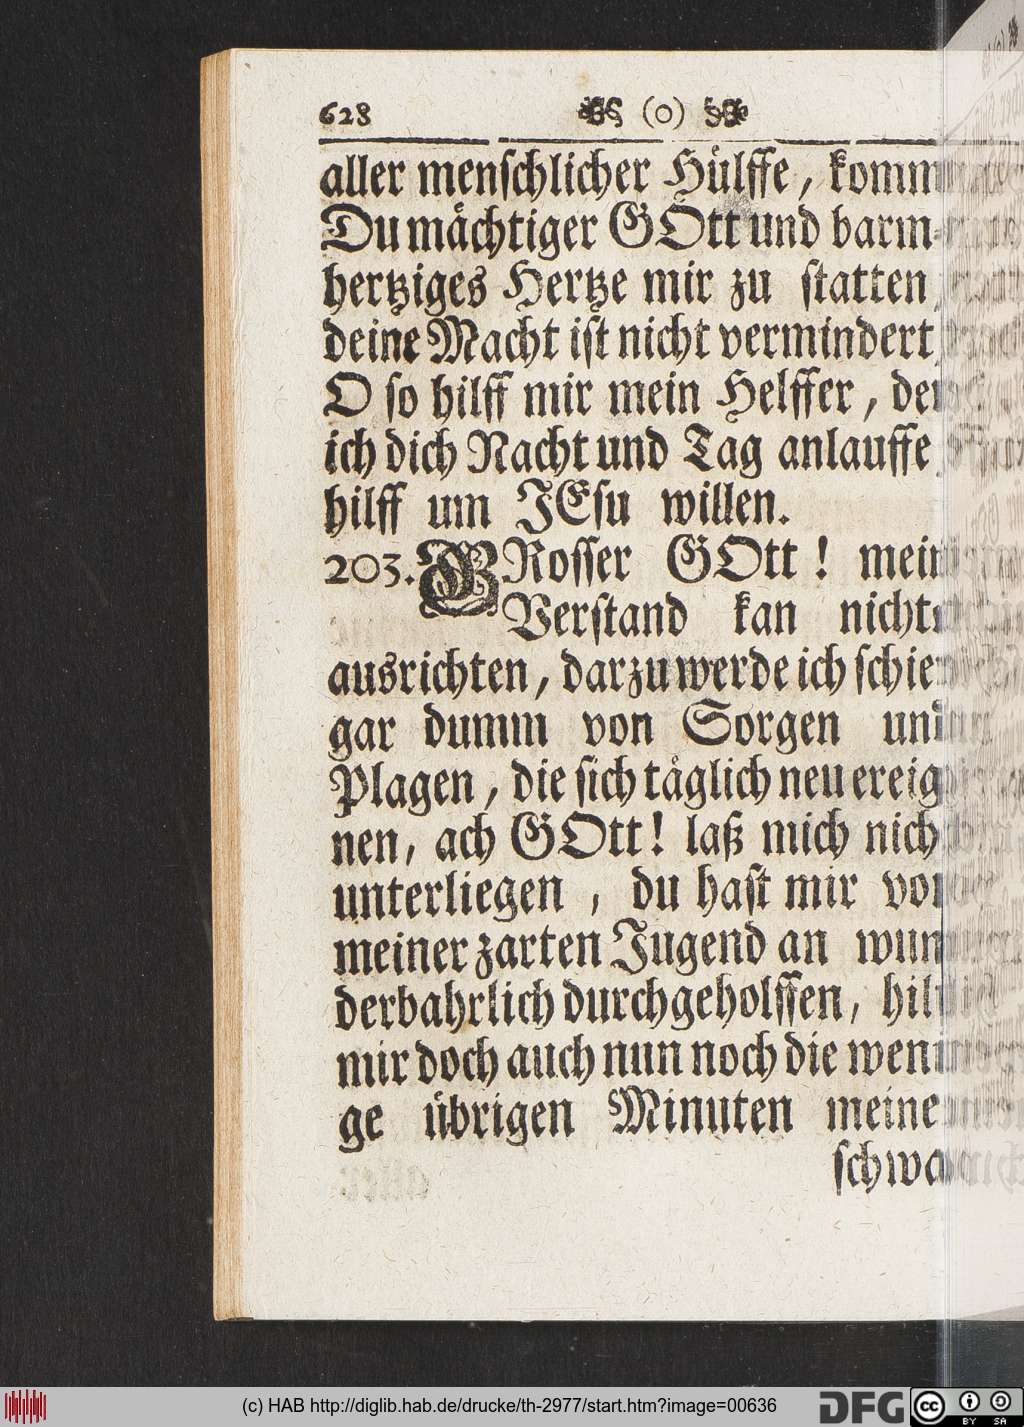 628 (0)
aller menschlicher Hülffe, komm
Du mächtiger GOtt und barm-
hertziges Hertze mir zu statten,
deine Macht ist nicht vermindert,
O so hilff mir mein Helffer, den
ich dich Nacht und Tag anlauffe,
hilff um JEsu willen.
203. GRosser GOtt! mein
Verstand kan nichts
ausrichten, darzu werde ich schier
gar dumm von Sorgen und
Plagen, die sich täglich neu ereig-
nen, ach GOtt! laß mich nicht
unterliegen, du hast mir von
meiner zarten Jugend an wun-
derbahrlich durchgeholffen, hilff
mir doch auch nun noch die weni-
ge übrigen Minuten meines
schwa-
(c) HAB http://diglib.hab.de/drucke/th-2977/start.htm?image=00636
DFG
cc BY SA